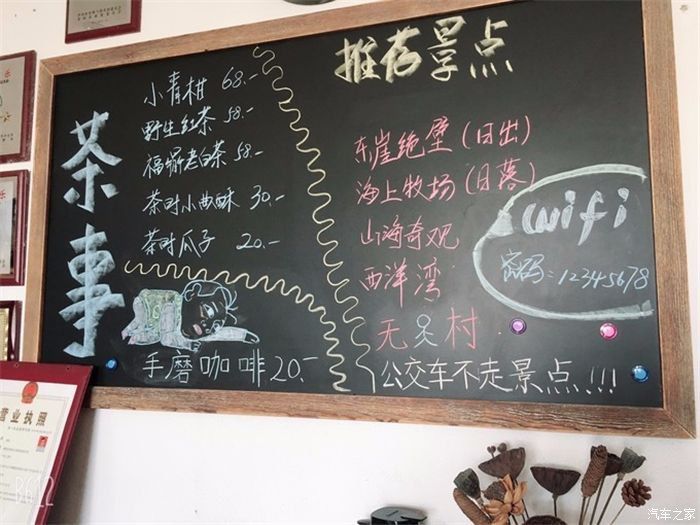 茶事
小青柑 68.-
野生红茶 58.-
福鼎老白茶 58.-
茶时小曲酥 30.-
茶时瓜子 20.-
手磨咖啡 20.-
推荐景点
东崖绝壁(日出)
海上牧场(日落)
山海奇观
西洋湾
无炙村
公交车不走景点!!!
wifi
密码:12345678
营业执照
B612
汽车之家